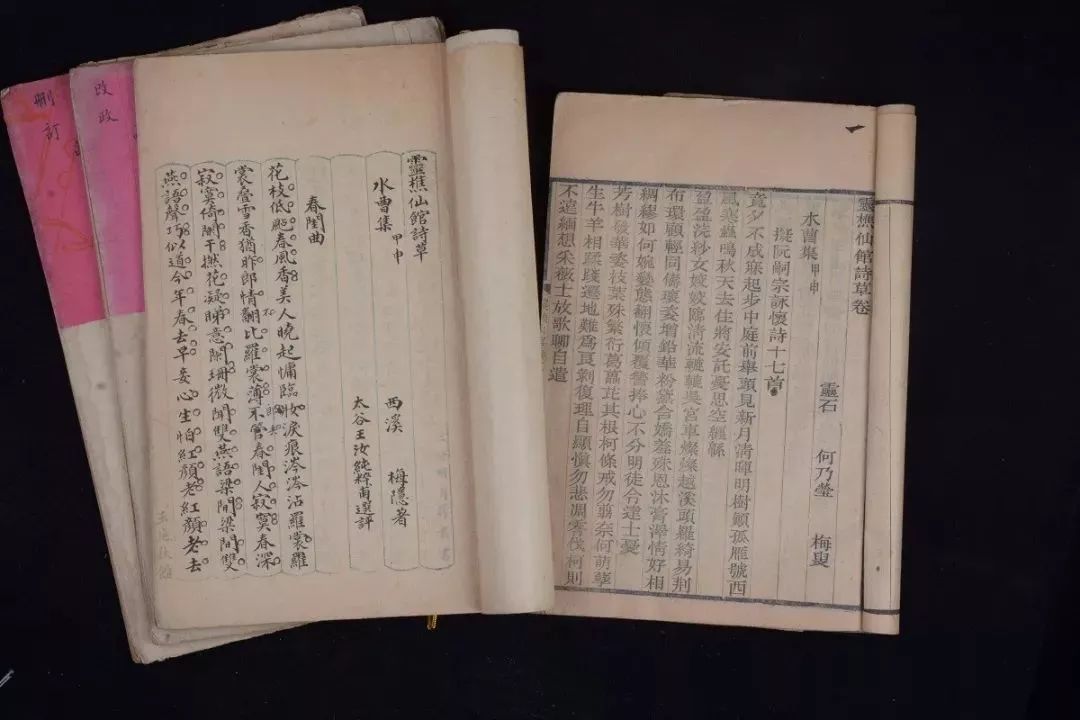 刪訂
改政
靈樵仙館詩草
水曹集 甲申
西溪 梅隱著
太谷王汝純粹甫選評
春閨曲
花枝低颭春風香美人曉起慵臨女淚痕涔涔沾羅裳羅
裳疊雪香猶昨郎情翻比羅裳薄不管春閨人寂寞春深
寂寞倚闌干撫花凝睇意闌珊微聞雙燕語梁間梁間雙
燕語聲巧似道今年春去早妾心生怕紅顏老紅顏老去
靈樵仙館詩草卷
水曹集 甲申
靈石 何乃瑩 梅叟
擬阮嗣宗詠懷詩十七首
竟夕不成寐起步中庭前舉頭見新月清暉明樹顛孤雁號西
風寒蟲鳴秋天去住將安託憂思空纏緜
盈盈浣紗女姣姣臨清流轆轤吳宮車燦燦越溪頭羅綺易荆
布環顧輕同儔瓌姿增鉛華粉黛含嬌羞殊恩沐膏澤情好相
綢繆如何婉孌態翻懷傾覆謀捧心不分明徒令達士憂
芳樹發華姿枝葉殊繁衍葛藟庇其根柯條戒勿翦奈何萌孽
生牛羊相踩踐遷地難為良剝復理自顯慎勿悲凋零伐柯則
不遠緬想采薇士放歌聊自遣